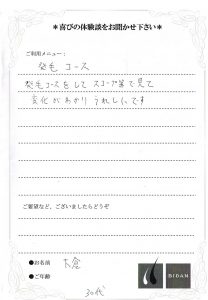 ＊喜びの体験談をお聞かせ下さい＊
ご利用メニュー：
発毛 コース
発毛コースをして スコープ等で見て
変化がわかり うれしいです
ご要望など、ございましたらどうぞ
●お名前 大倉
●ご年齢
30代
BIDAN